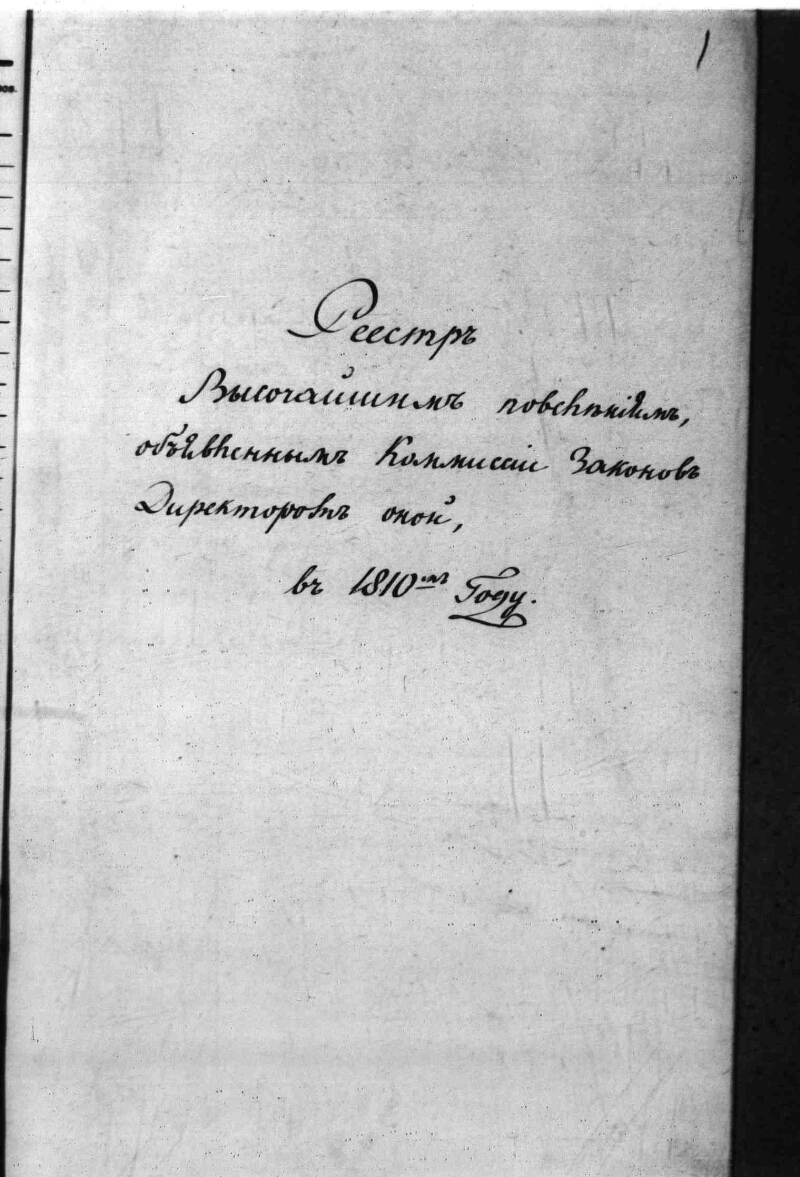 1
Реестръ
Высочайшимъ повелѣніямъ,
объявленнымъ Коммиссіи Законовъ
Директоромъ оной,
въ 1810мъ Году.